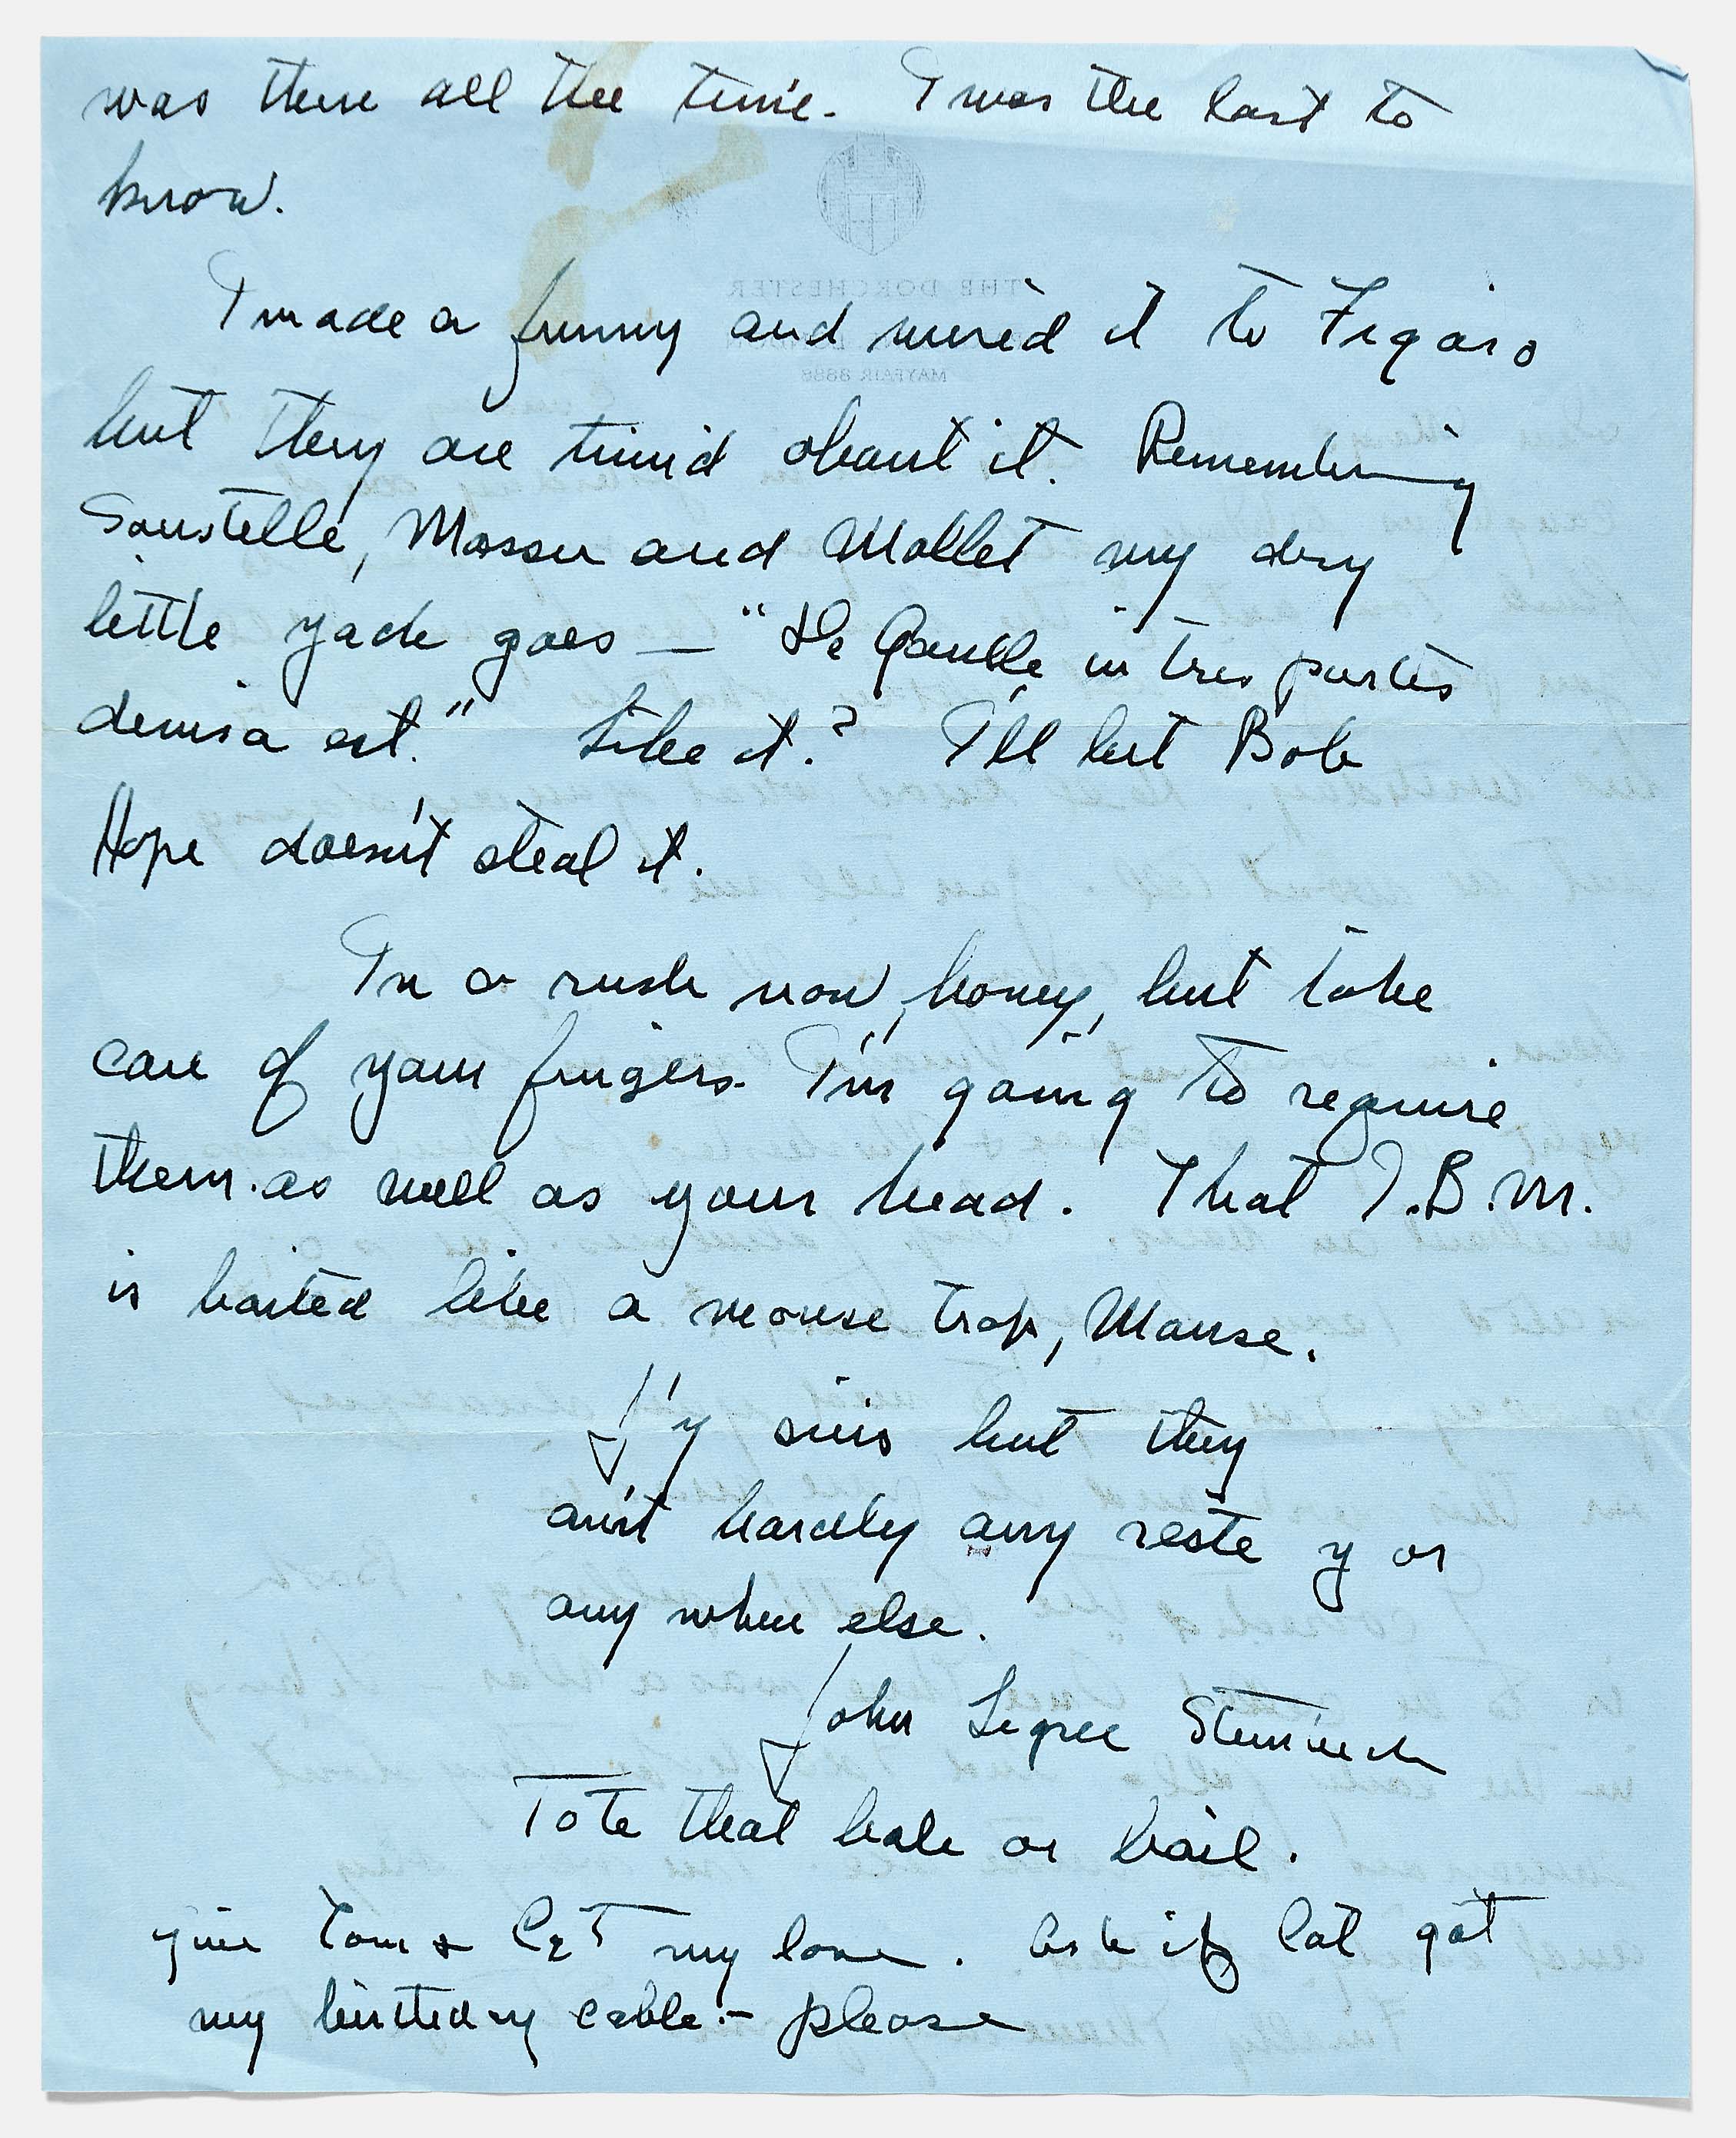 was there all the time. I was the last to
know.
THE DORCHESTER
MAYFAIR 8888
I made a funny and wired it to Figaro
but they are timid about it. Remembering
Soustelle, Massu and Mollet my dry
little yack goes — "De Gaulle in tres partes
devisa est." Like it? I'll bet Bob
Hope doesn't steal it.
In a rush now, honey, but take
care of your fingers. I'm going to require
them as well as your head. That I.B.M.
is baited like a mouse trap, Mouse.
J'y suis but they
ain't hardly any reste y or
any where else.
John Legree Steinbeck
Tote that bale or bail.
give Tom & my love. Ask if Cat got
my birthday cable - please